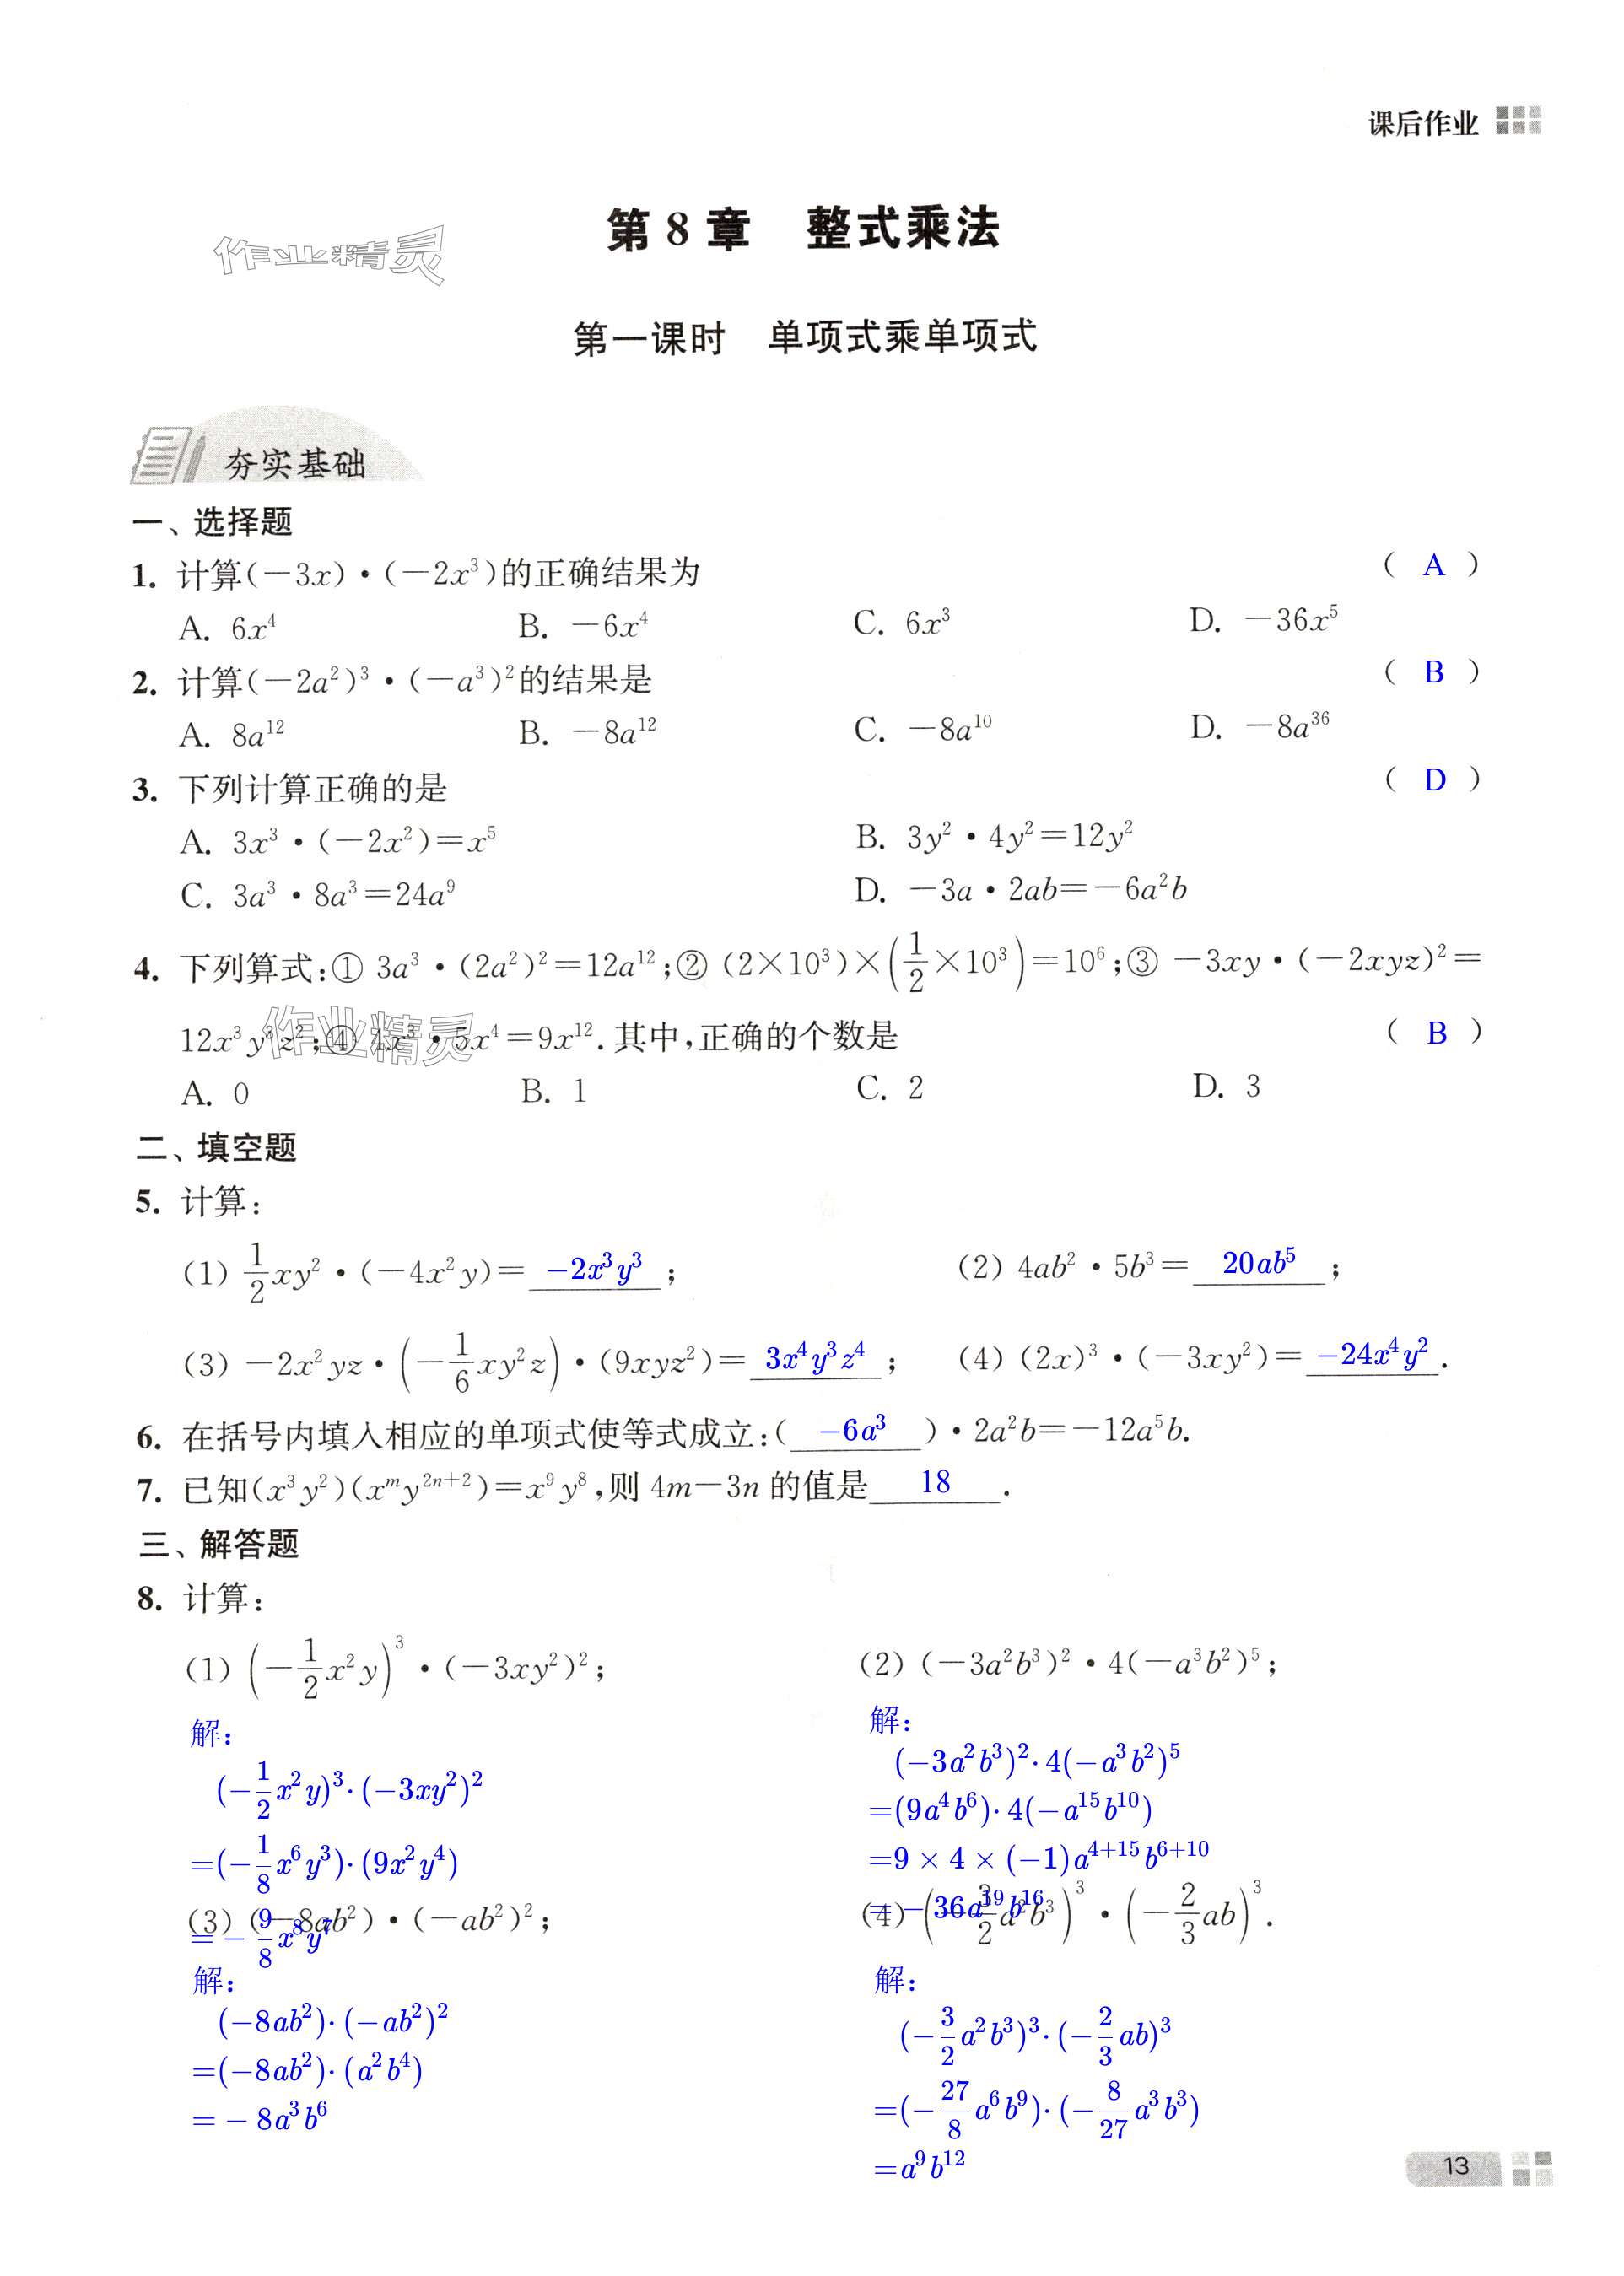 课后作业
第 8 章 整式乘法
作业精灵
第一课时 单项式乘单项式
夯实基础
一、选择题
1. 计算(－3x)·(－2x³)的正确结果为 ( A )
A. 6x⁴ B. －6x⁴ C. 6x³ D. －36x⁵
2. 计算(－2a²)³·(－a³)²的结果是 ( B )
A. 8a¹² B. －8a¹² C. －8a¹⁰ D. －8a³⁶
3. 下列计算正确的是 ( D )
A. 3x³·(－2x²)＝x⁵ B. 3y²·4y²＝12y²
C. 3a³·8a³＝24a⁹ D. －3a·2ab＝－6a²b
4. 下列算式:① 3a³·(2a²)²＝12a¹²;② (2×10³)×(1/2×10³)＝10⁶;③ －3xy·(－2xyz)²＝
12x³y³z²;④ 4x³·5x⁴＝9x¹².其中,正确的个数是 ( B )
作业精灵
A. 0 B. 1 C. 2 D. 3
二、填空题
5. 计算:
(1) 1/2xy²·(－4x²y)＝ －2x³y³ ; (2) 4ab²·5b³＝ 20ab⁵ ;
(3) －2x²yz·(－1/6xy²z)·(9xyz²)＝ 3x⁴y³z⁴ ; (4) (2x)³·(－3xy²)＝ －24x⁴y² .
6. 在括号内填入相应的单项式使等式成立:( －6a³ )·2a²b＝－12a⁵b.
7. 已知(x³y²)(xᵐy²ⁿ⁺²)＝x⁹y⁸,则 4m－3n 的值是 18 .
三、解答题
8. 计算:
(1) (－1/2x²y)³·(－3xy²)²; (2) (－3a²b³)²·4(－a³b²)⁵;
解: 解:
(－1/2x²y)³·(－3xy²)² (－3a²b³)²·4(－a³b²)⁵
=(－1/8x⁶y³)·(9x²y⁴) =(9a⁴b⁶)·4(－a¹⁵b¹⁰)
=－9/8x⁸y⁷ =9×4×(－1)a⁴⁺¹⁵b⁶⁺¹⁰
=－36a¹⁹b¹⁶
(3) (－8ab²)·(－ab²)²; (4) (－3/2a²b³)³·(－2/3ab)³.
解: 解:
(－8ab²)·(－ab²)² (－3/2a²b³)³·(－2/3ab)³
=(－8ab²)·(a²b⁴) =(－27/8a⁶b⁹)·(－8/27a³b³)
=－8a³b⁶ =a⁹b¹²
13